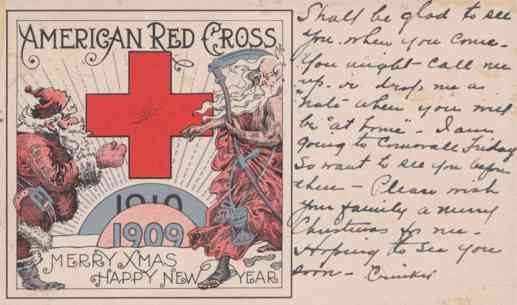 AMERICAN RED CROSS
1910
1909
MERRY XMAS
HAPPY NEW YEAR
Shall be glad to see
you when you come -
You might call me
up - or drop me a
"note" when you will
be "at home" - I am
going to Cornwall Friday
So want to see you before
then - Please wish
your family a merry
Christmas for me -
Hoping to see you
soon -